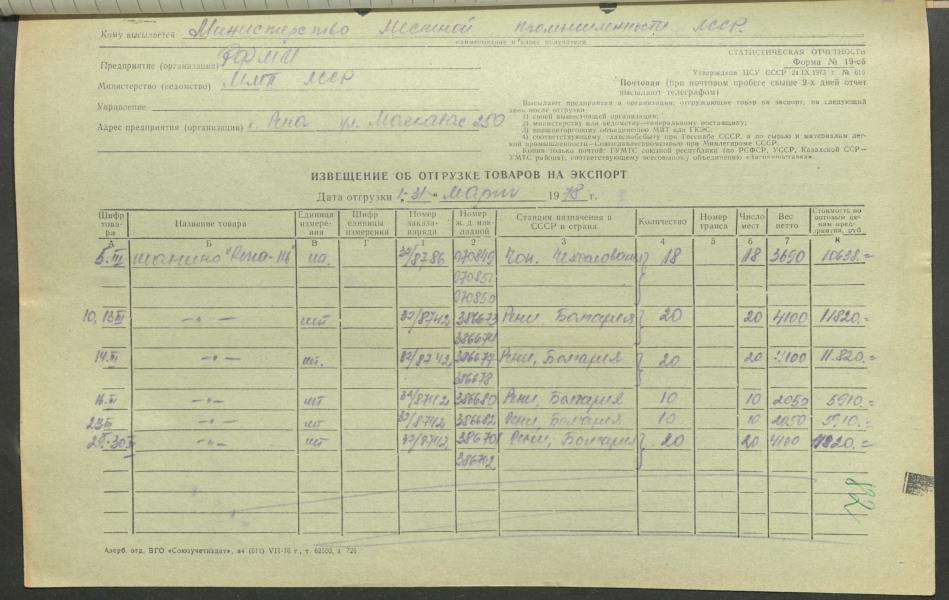 Кому высылается Министерство Местной промышленности ЛССР.
наименование и адрес получателя
СТАТИСТИЧЕСКАЯ ОТЧЕТНОСТЬ
Форма № 19-сб
Утверждена ЦСУ СССР 24.IX 1973 г. № 616
Почтовая (при почтовом пробеге свыше 2-х дней отчет
высылают телеграфом)
Предприятие (организация) РФМИ
Министерство (ведомство) ММП ЛССР
Управление
Адрес предприятия (организации) г. Рига ул. Маскавас 250
Высылают предприятия и организации, отгружающие товар на экспорт, на следующий
день после отгрузки:
1) своей вышестоящей организации;
2) министерству или ведомству—генеральному поставщику;
3) внешнеторговому объединению МВТ или ГКЭС;
4) соответствующему главснабсбыту при Госснабе СССР, а по сырью и материалам лег-
кой промышленности—Союзглавлегпромсырью при Минлегпроме СССР.
Копия только почтой: ГУМТС союзной республики (по РСФСР, УССР, Казахской ССР—
УМТС района); соответствующему всесоюзному объединению
ИЗВЕЩЕНИЕ ОБ ОТГРУЗКЕ ТОВАРОВ НА ЭКСПОРТ
Дата отгрузки 1-31 " марта 1978 г.
Шифр товара Название товара Единица измерения Шифр единицы измерения Номер заказа-наряда Номер ж. д. накладной Станция назначения в СССР и страна Количество Номер транса Число мест Вес нетто Стоимость по оптовым ценам предприятия, руб
А Б В Г 1 2 3 4 5 6 7 8
5.III пианино "Рига- шт. /8786 070849 Чоп. Чехословакия 18 18 3690 10638.=
070851
070850
10, 13III —"— шт /8742 386673 Рени, Болгария 20 20 4100 11820.=
386674
14.III —"— шт. /8742 386677 Рени, Болгария 20 20 4100 11.820.=
386678
16.III —"— шт /8742 386680 Рени, Болгария 10 10 2050 5910.=
23III —"— шт /8742 386682 Рени, Болгария 10 10 2050 5910.=
—"— шт /8742 386701 Рени, Болгария 20 20 4100 11820.=
386702
Азерб. отд. ВГО «Союзучетиздат», а4 (611) VII-76 г., т. 62500, з 726